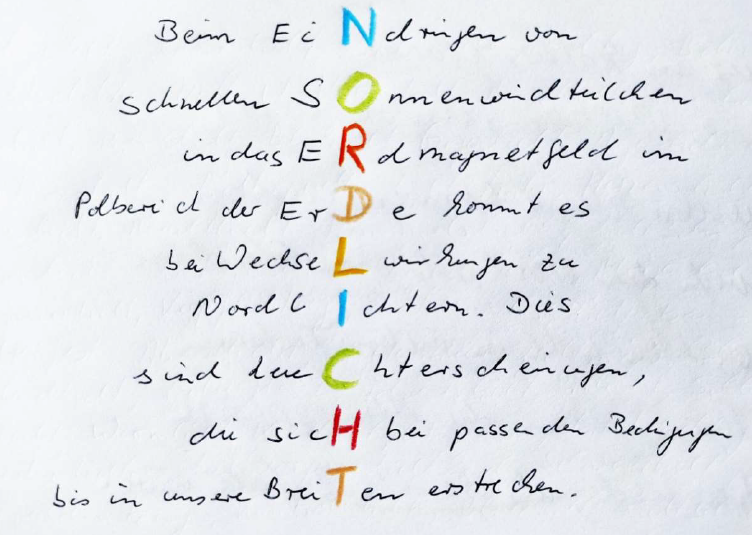 Beim EiNdringen von
schnellen SOnnenwindteilchen
in das ERdmagnetfeld im
Polbereich der ErDe kommt es
bei WechseLwirkungen zu
NordlIchtern. Dies
sind LeuChterscheinungen,
die sicH bei passenden Bedingungen
bis in unsere BreiTen erstrecken.